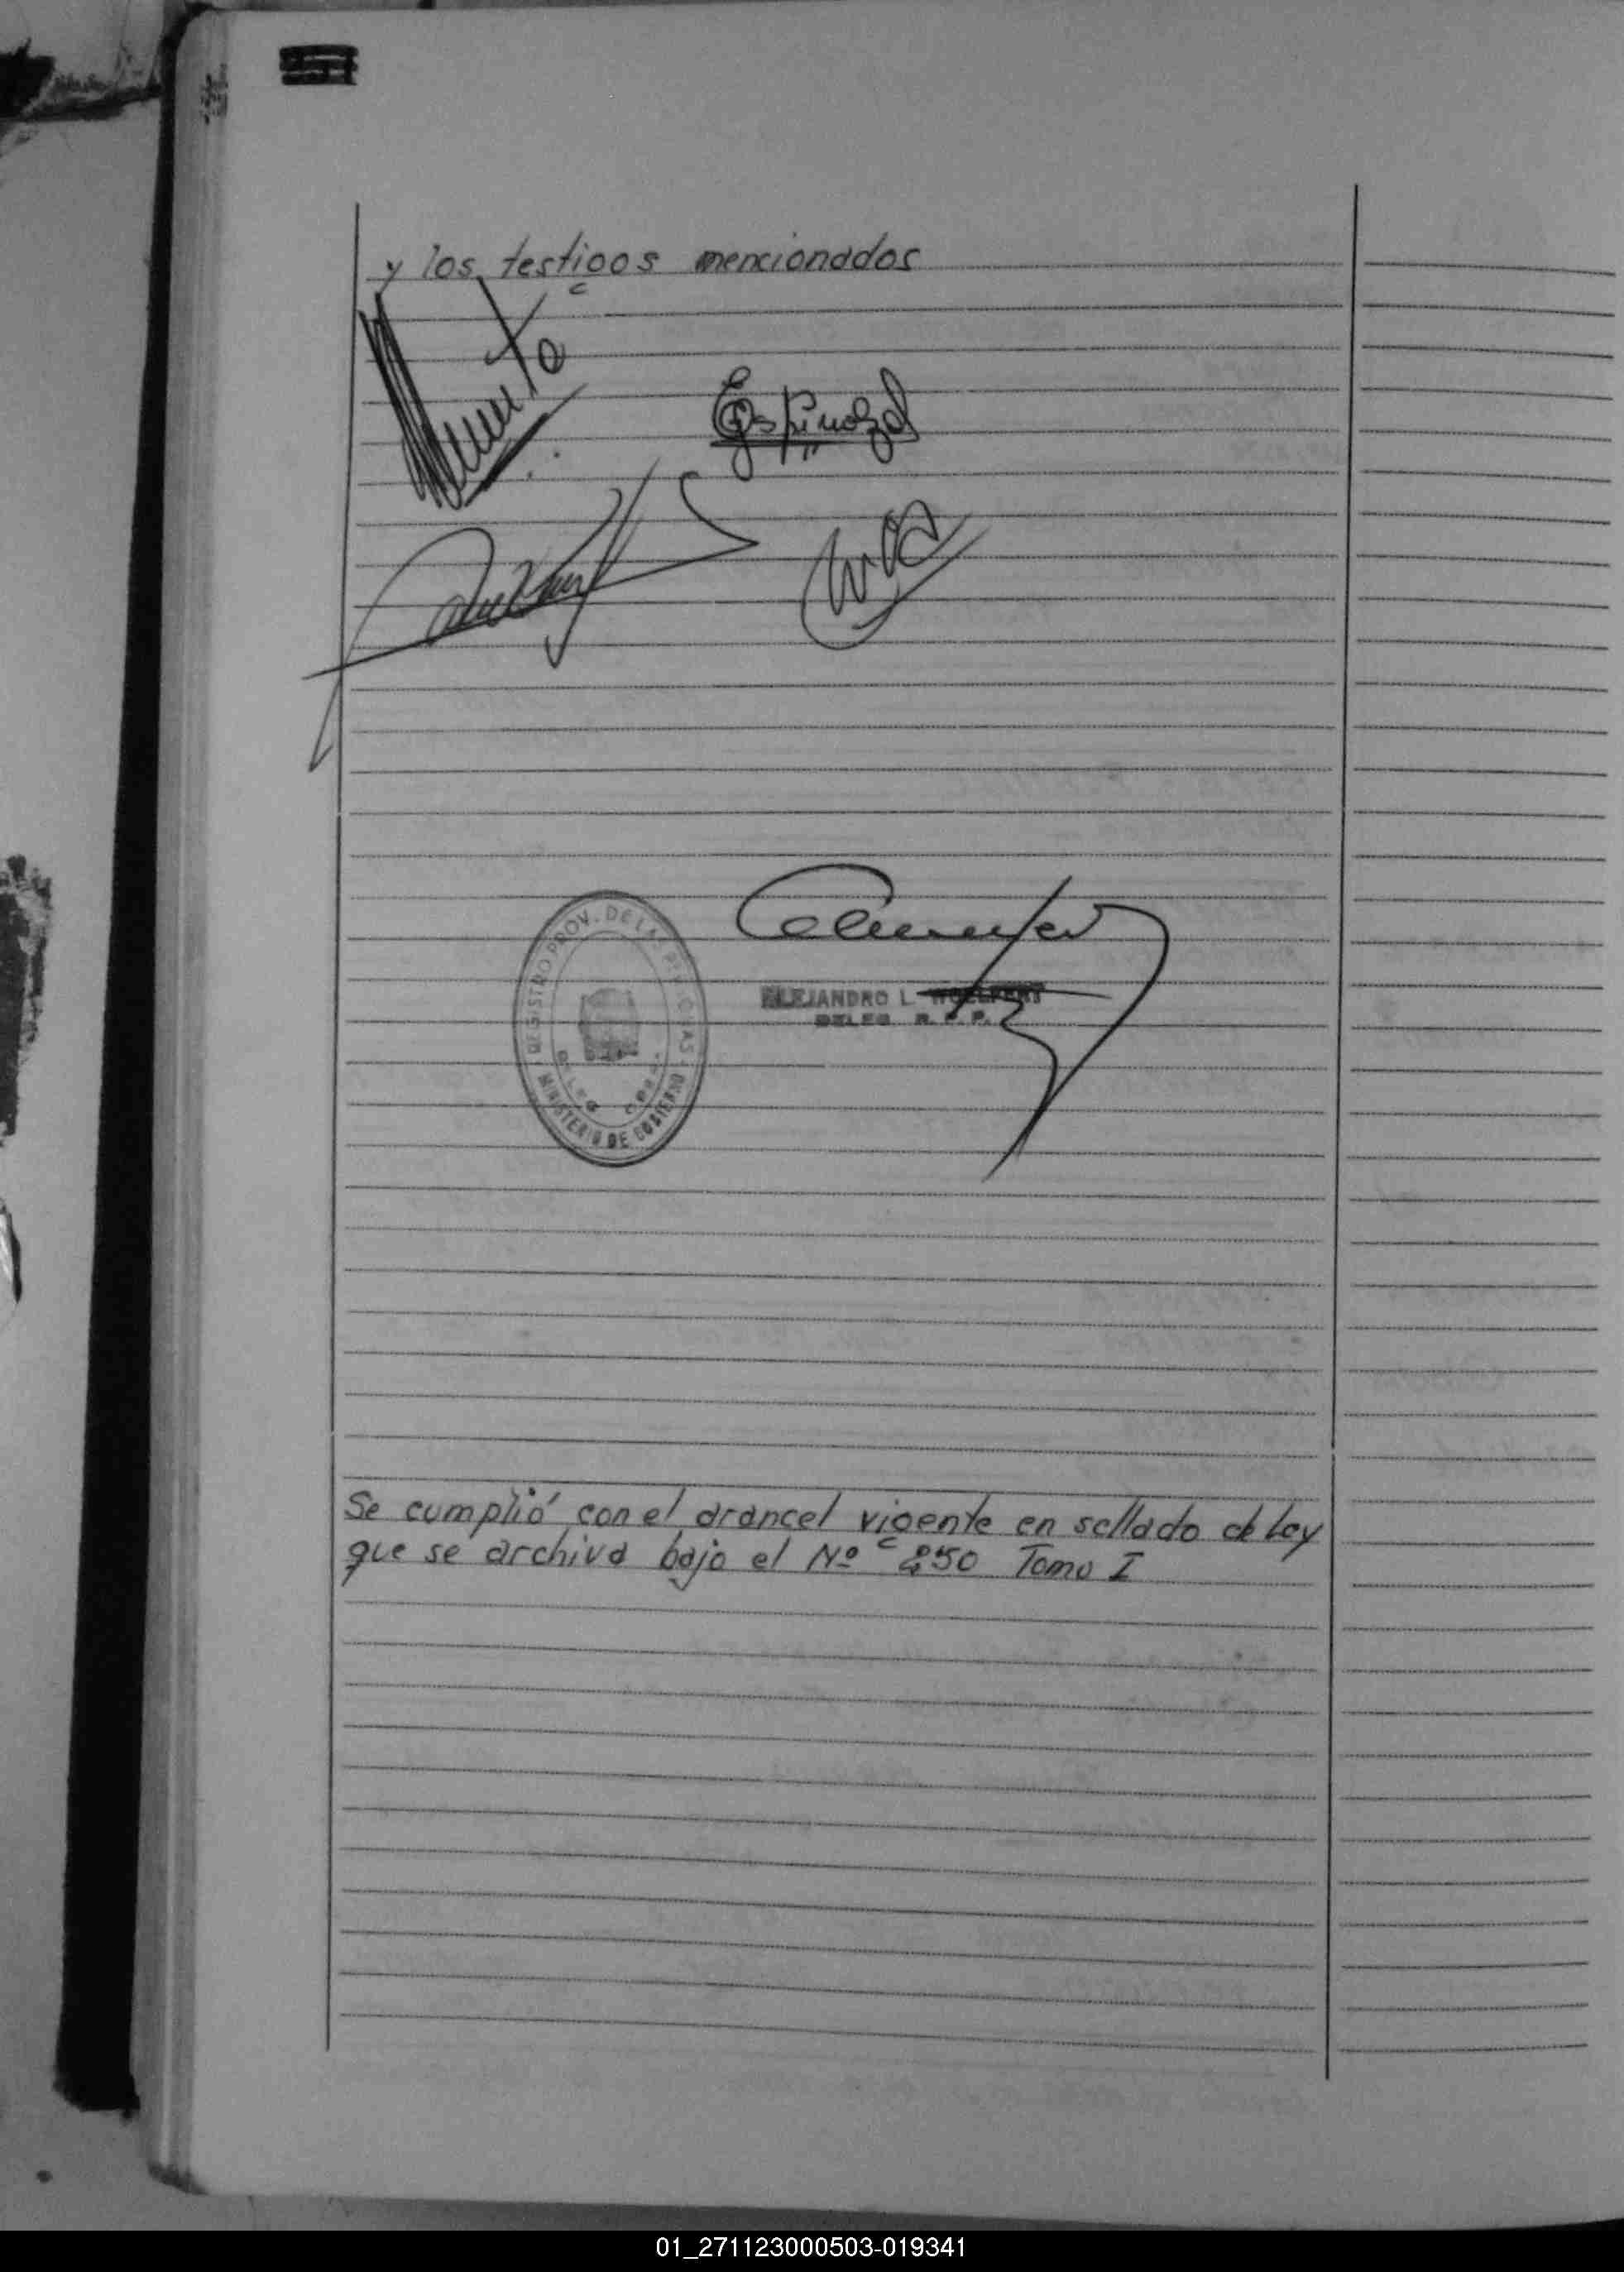 y los testigos mencionados
Espinoza
REGISTRO PROV. DE LAS PERSONAS
MINISTERIO DE GOBIERNO
ALEJANDRO L. WOELFERT
DELEG. R. P. P.
Se cumplió con el arancel vigente en sellado de Ley
que se archiva bajo el Nº 250 Tomo I
01_271123000503-019341